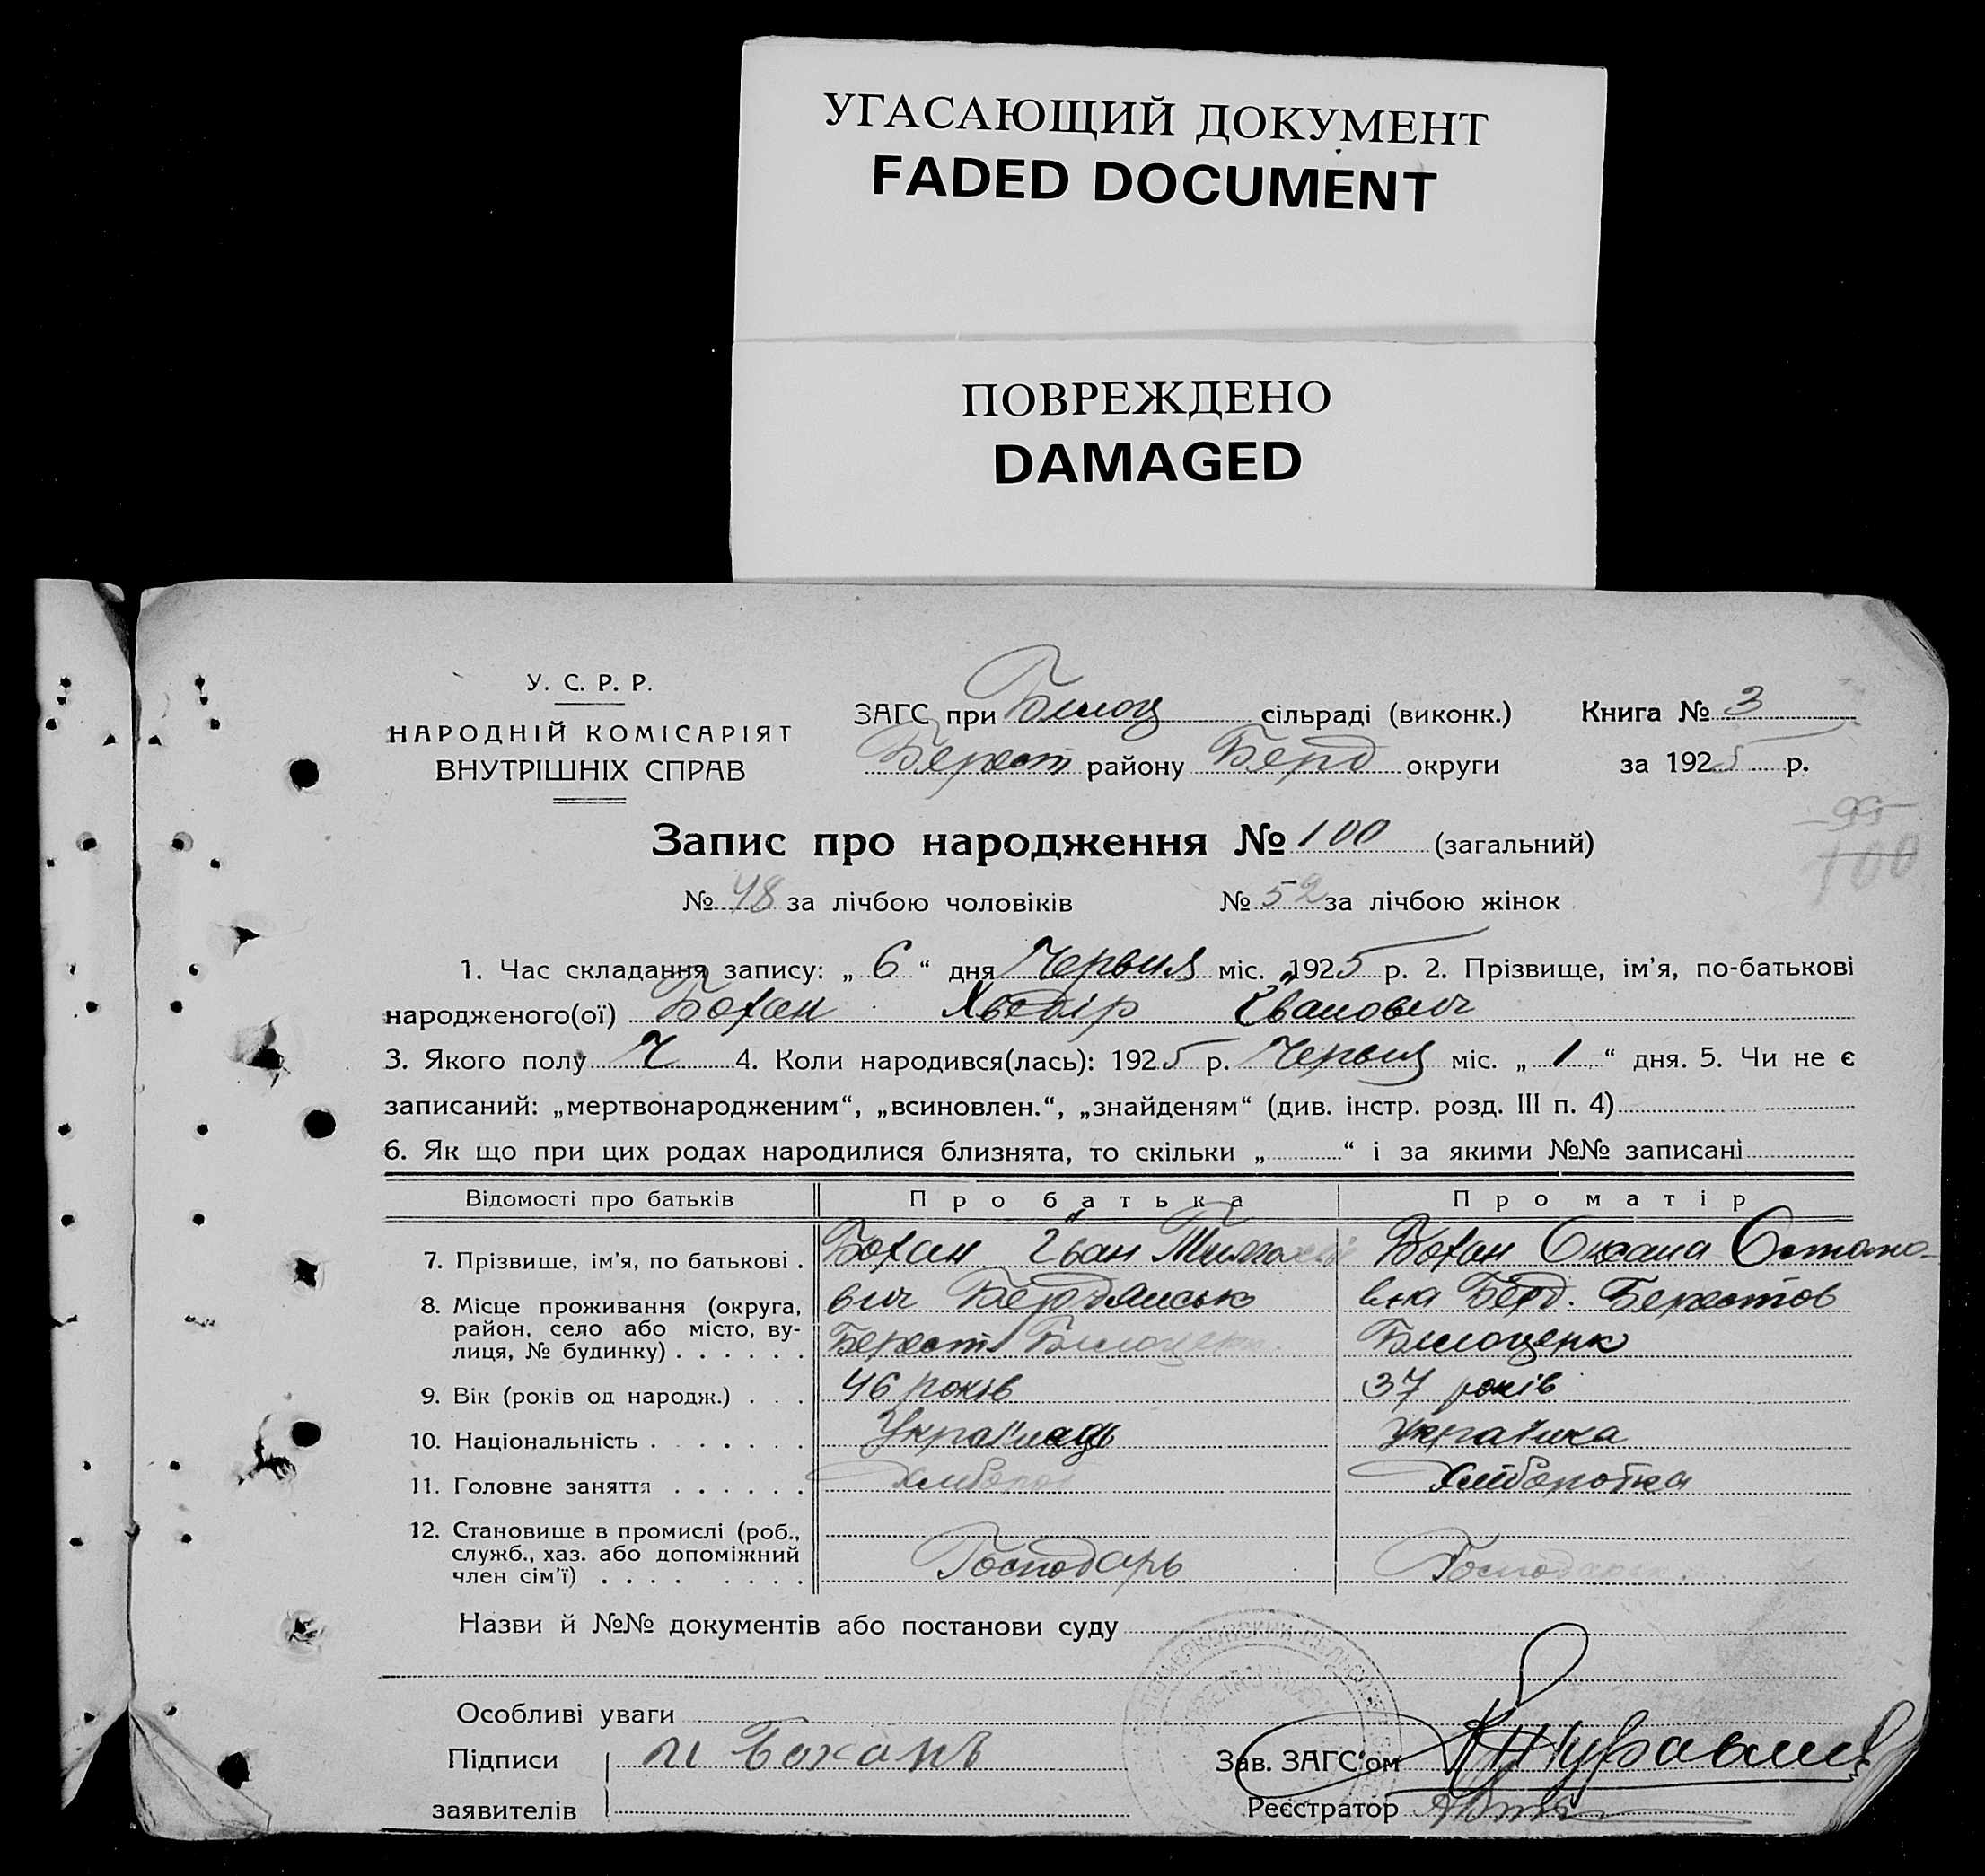 УГАСАЮЩИЙ ДОКУМЕНТ
FADED DOCUMENT
ПОВРЕЖДЕНО
DAMAGED
У. С. Р. Р.
НАРОДНІЙ КОМІСАРІЯТ
ВНУТРІШНІХ СПРАВ
ЗАГС при Білоц сільраді (виконк.)
Берест району Берд округи
Книга № 3
за 1925 р.
99
100
Запис про народження № 100 (загальний)
№ 48 за лічбою чоловіків № 52 за лічбою жінок
1. Час складання запису: „ 6 “ дня Червня міс. 1925 р. 2. Прізвище, ім’я, по-батькові
народженого(ої) Бохан Хведір Іванович
3. Якого полу Ч 4. Коли народився(лась): 1925 р. Червня міс. „ 1 “ дня. 5. Чи не є
записаний: „мертвонародженим“, „всиновлен.“, „знайденям“ (див. інстр. розд. III п. 4)
6. Як що при цих родах народилися близнята, то скільки „ “ і за якими №№ записані
Відомості про батьків Про батька Про матір
7. Прізвище, ім’я, по батькові . Бохан Іван Тимохвій Бохан Оксана Остапо-
8. Місце проживання (округа, вич Бердянськ вна Берд. Берестов
район, село або місто, ву-
лиця, № будинку) . . . . . . Берест Білоцерк Білоцерк
9. Вік (років од народж.) . . . 46 років 37 років
10. Національність . . . . . . . Українець Українка
11. Головне заняття . . . . . . Хлібороб Хліборобка
12. Становище в промислі (роб.,
служб., хаз. або допоміжний
член сім’ї) . . . . . . . . Господарь
Назви й №№ документів або постанови суду
Особливі уваги
Підписи заявителів И Боханъ
Зав. ЗАГС’ом Журавлів
Реєстратор